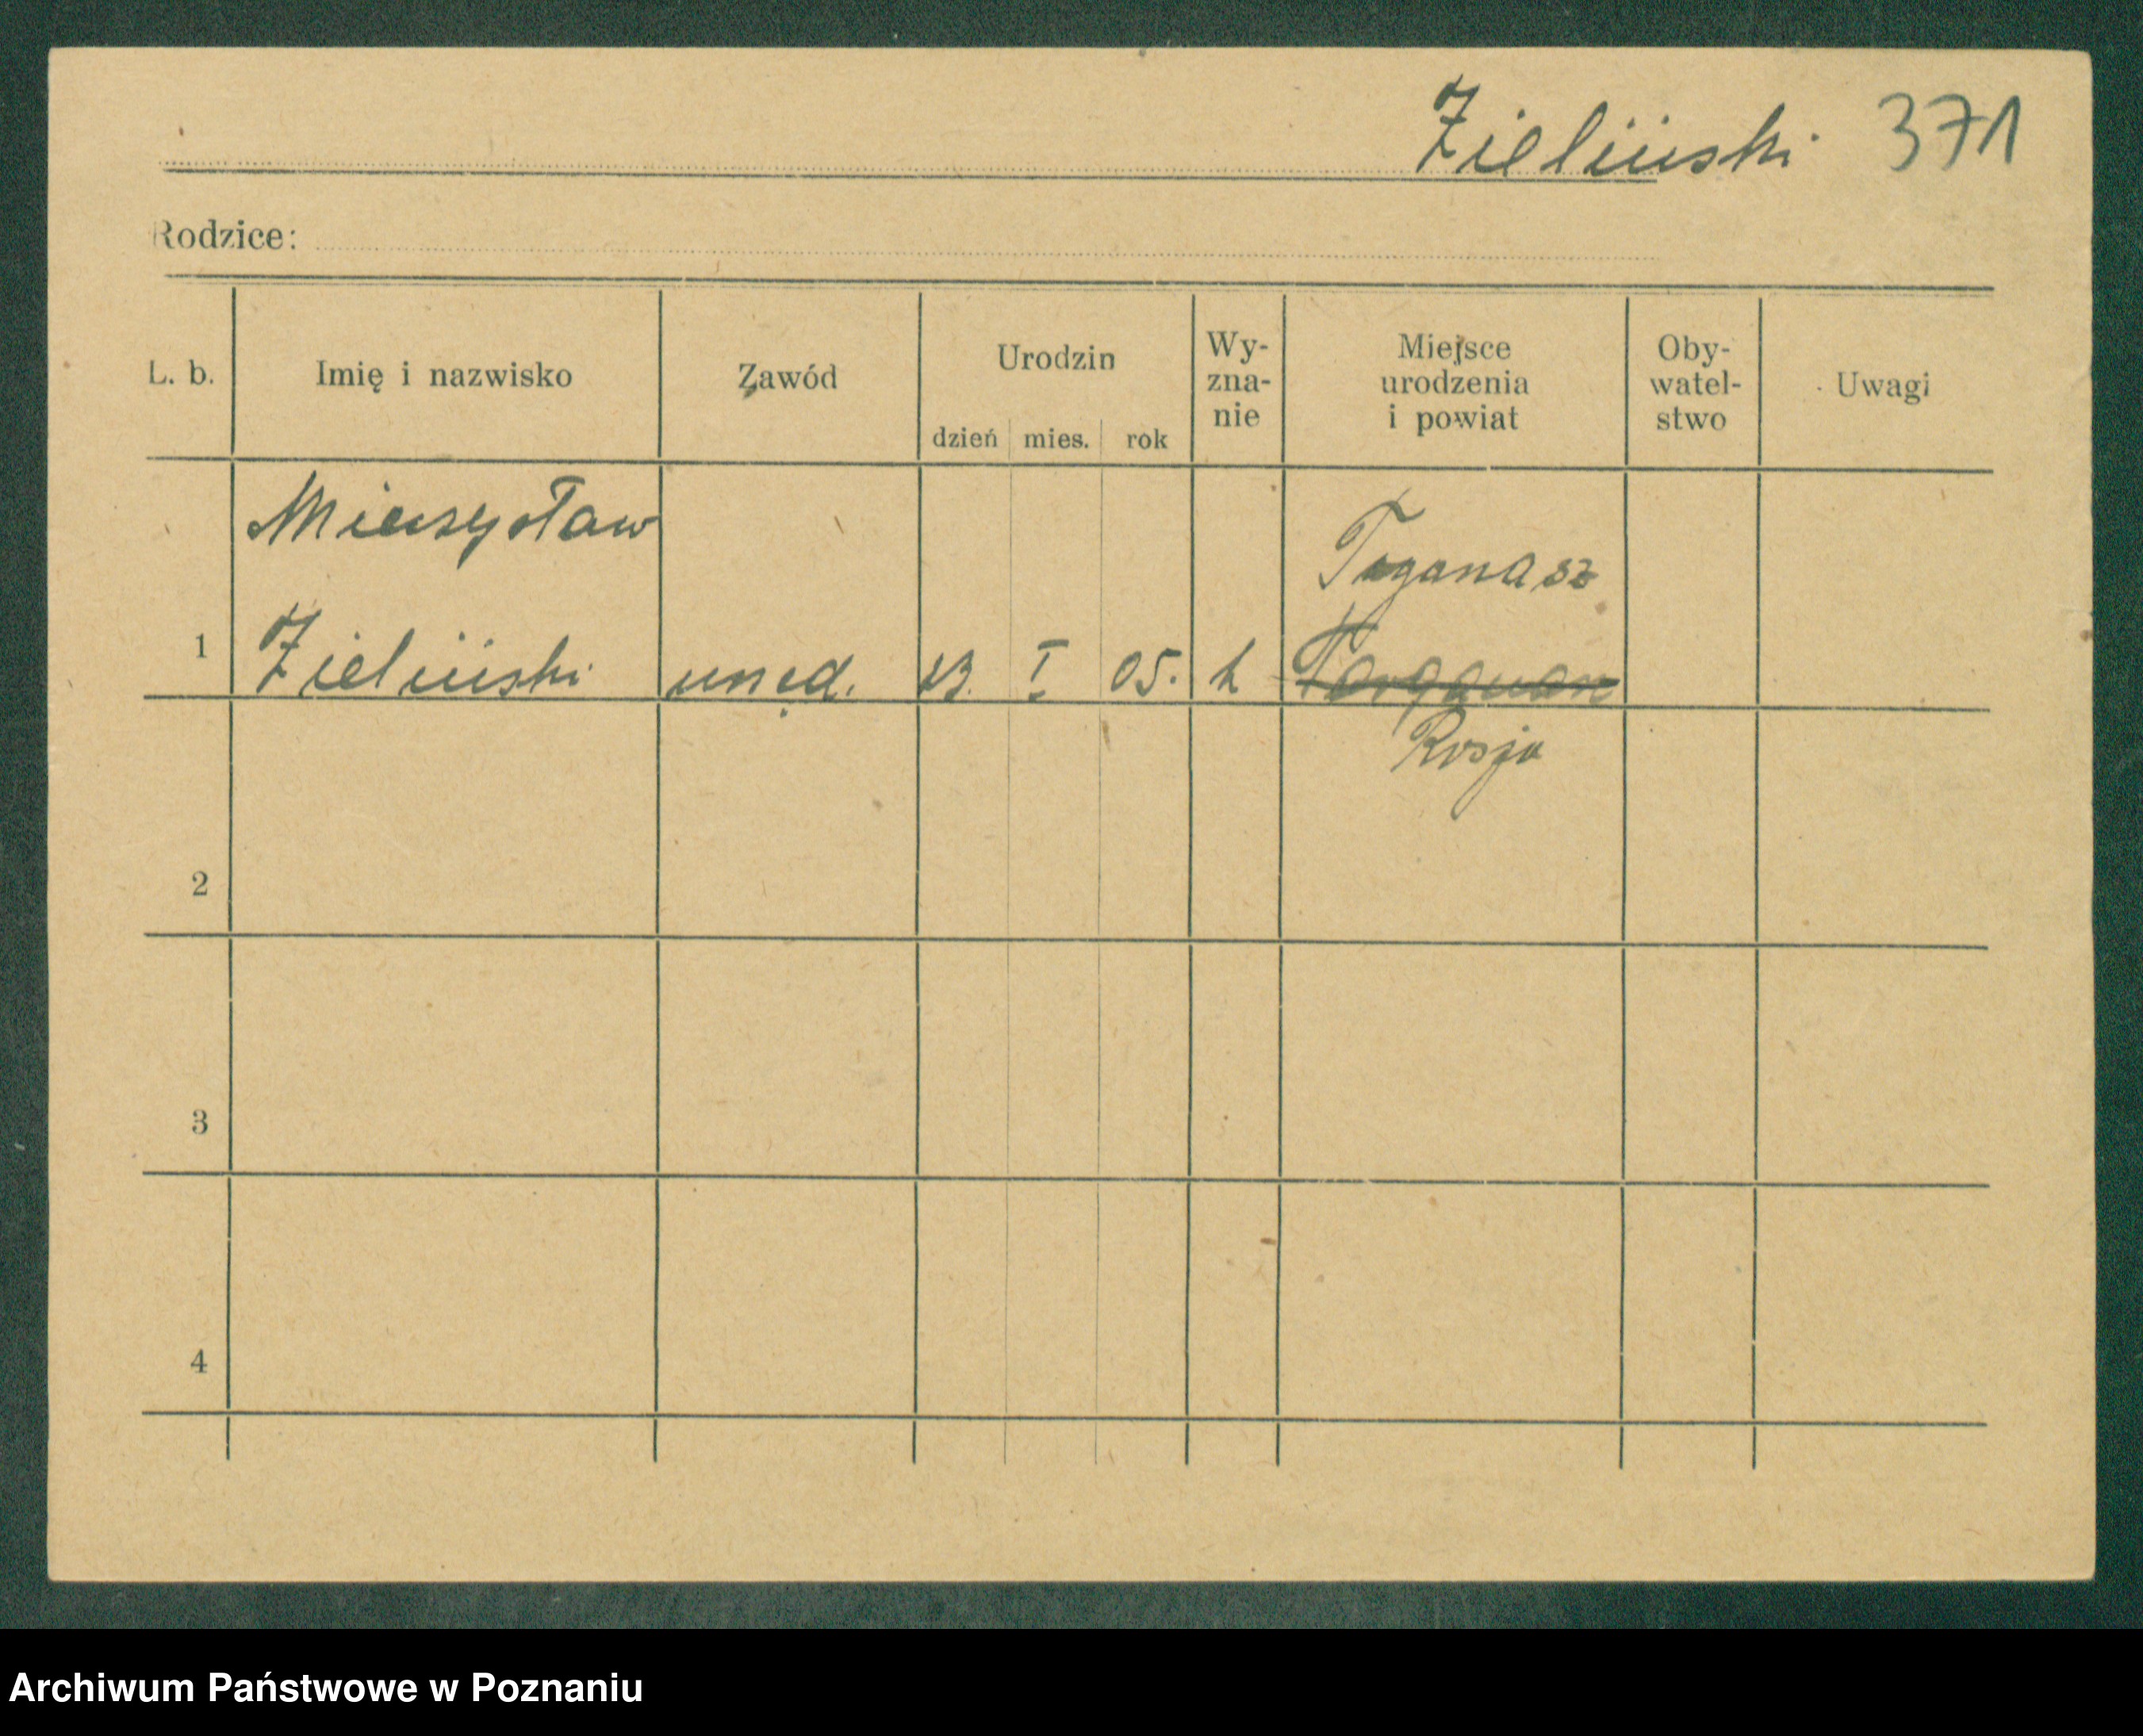 Zieliński 371
Rodzice:
L. b. Imię i nazwisko Zawód Urodzin dzień mies. rok Wy-zna-nie Miejsce urodzenia i powiat Oby-watel-stwo Uwagi
Mieczysław
Taganasz
1 Zieliński urzęd. I 05.
Rosja
2
3
4
Archiwum Państwowe w Poznaniu